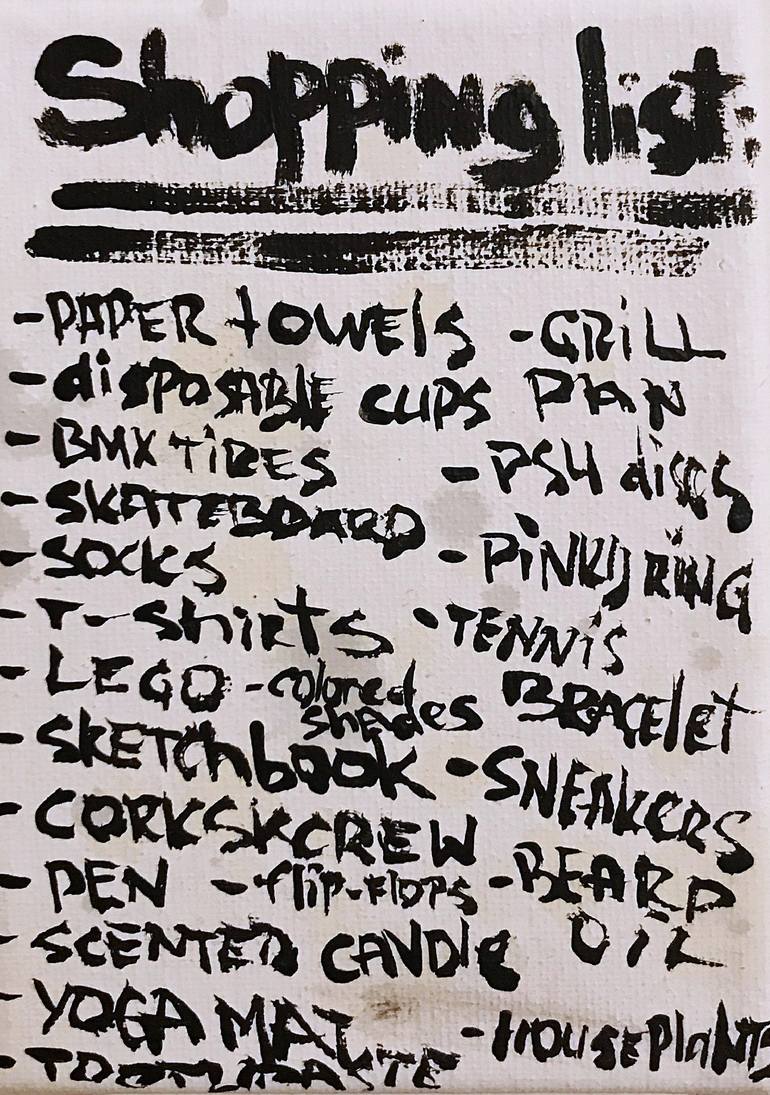 Shopping list
- PAPER towels
- disposable cups
- BMX TIRES
- SKATEBOARD
- SOCKS
- T-shirts
- LEGO
- colored
shades
- SKETChbook
- CORKSKCREW
- PEN
- flip-flops
- SCENTED CANDle
- YOGA MAT
- TOOTHPASTE
- GRiLL
PAN
- PS4 discs
- PiNKy RiNG
- TENNiS
BRACelet
- SNEAKERS
- BEARD
OiL
- HOUSEPlANTS